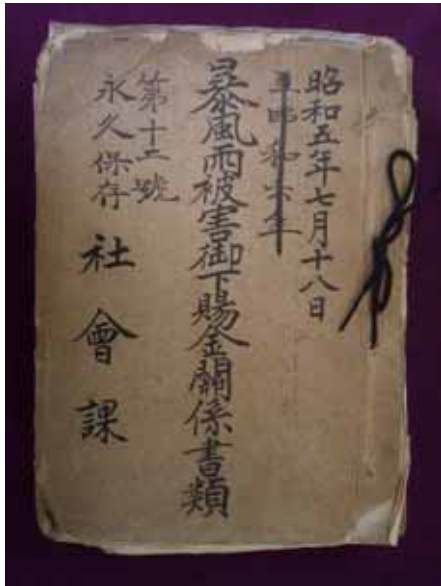 昭和五年七月十八日
至昭和六年
暴風雨被害御下賜金關係書類
第十二號
永久保存
社會課